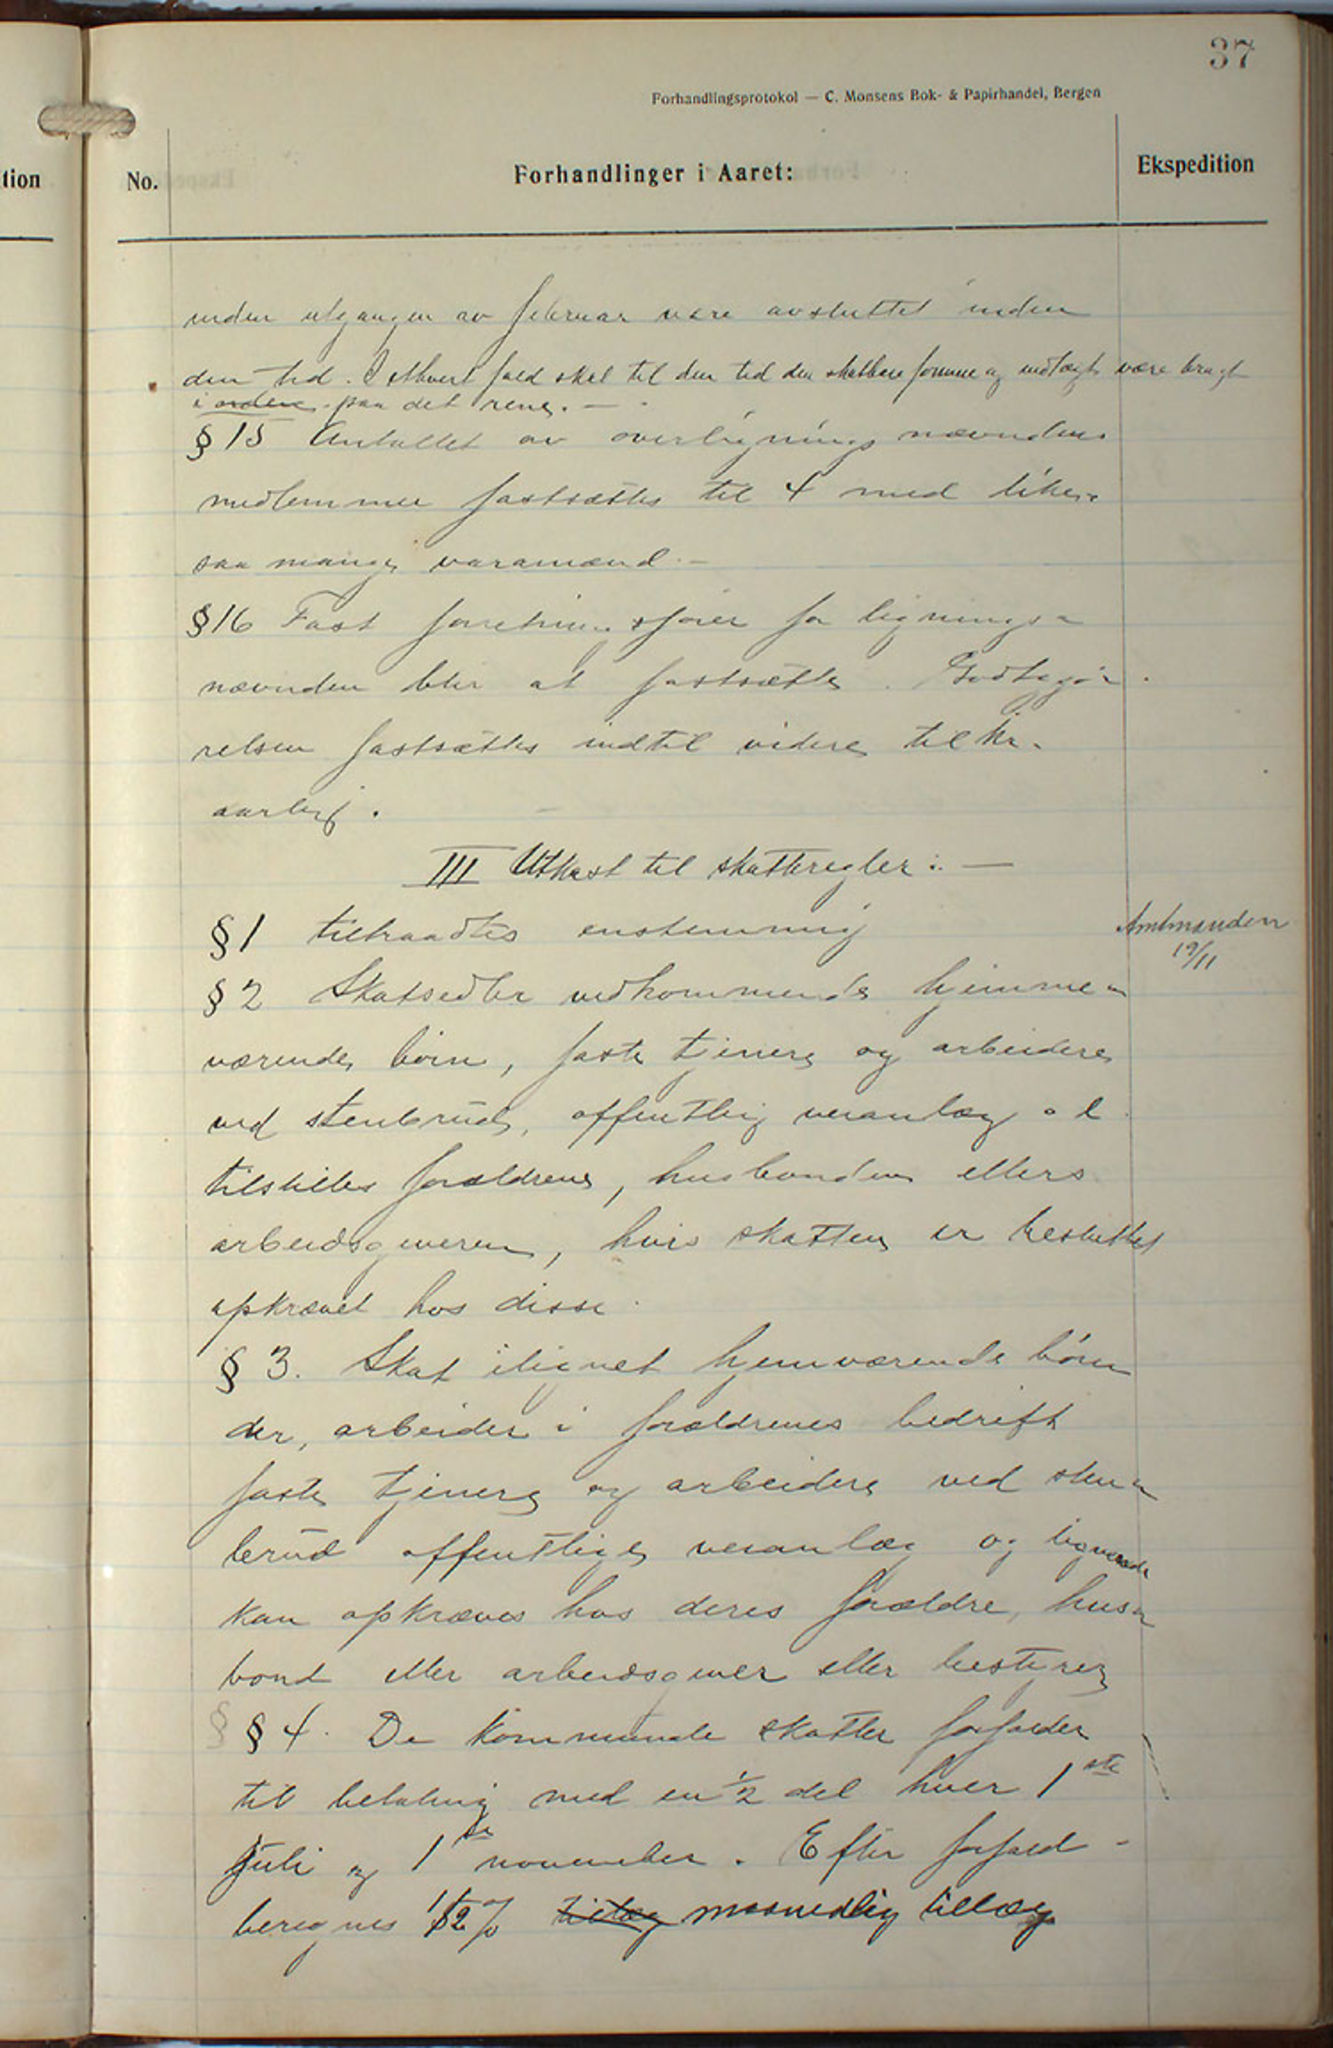 37
Forhandlingsprotokol — C. Monsens Bok- & Papirhandel, Bergen
tion
No.
Forhandlinger i Aaret:
Ekspedition
inden utgangen av februar være avsluttet inden
den tid. I ethvert fald skal til den tid den skatbare formue og indtægt være bragt
i orden paa det rene. —
§ 15 Antallet av overlignings nævndens
medlemmer fastsættes til 4 med like-
saa mange varamænd. —
§ 16 Fast forretningsfører for lignings-
nævnden blir at fastsætte. Godtgjø-
relsen fastsættes indtil videre til kr.
aarlig. —
III Utkast til skatteregler: —
§ 1 tiltraadtes enstemmig
Amtmanden
19/11
§ 2 Skatsedler vedkommende hjemme-
værende børn, faste tjenere og arbeidere
ved stenbrud, offentlig veranlæg o l
tilstilles forældrene, husbonden eller
arbeidsgiveren, hvis skatten er besluttet
opkrævet hos disse.
§ 3. Skat ilignet hjemværende børn
der, arbeider i forældrenes bedrift
faste tjenere og arbeidere ved sten-
brud offentlige veranlæg og lignende
kan opkræves hos deres forældre, hus-
bond eller arbeidsgiver eller bestyrer
§ § 4. De kommunale skatter forfalder
til betaling med en 1/2 del hver 1ste
juli og 1ste november. Efter forfald -
beregnes 1/2 % tillæg maanedlig tillæg